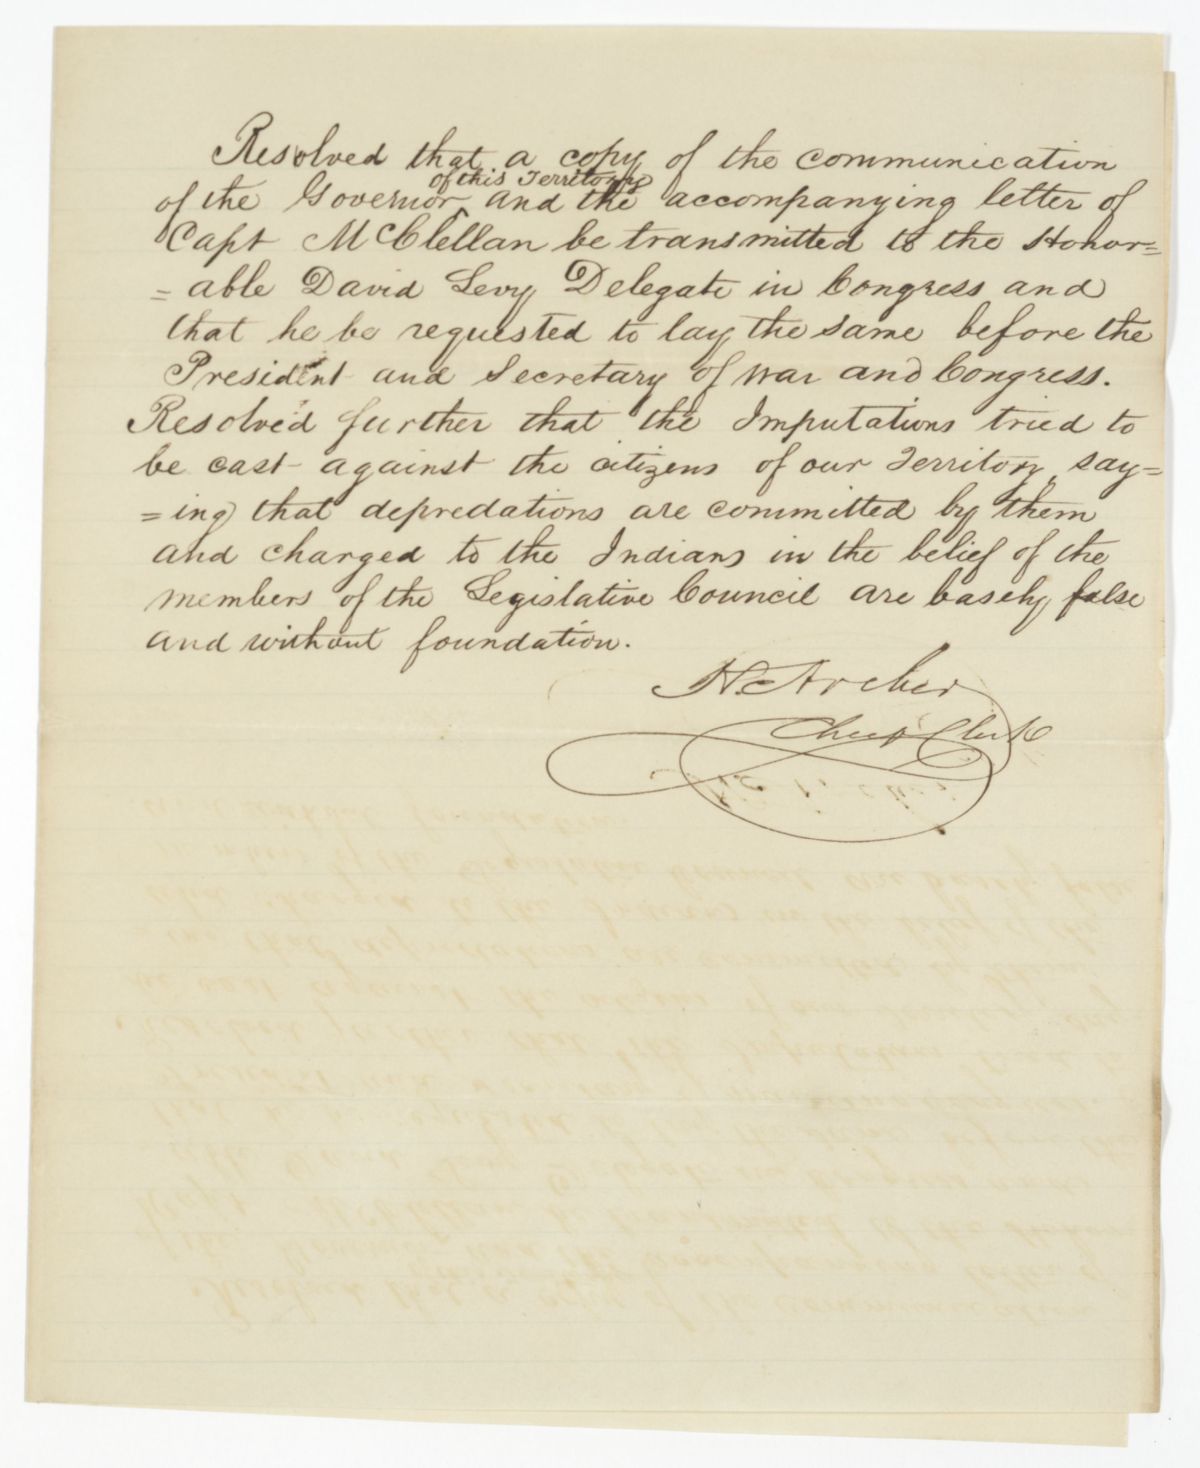 Resolved that a copy of the communication
of this Territory
of the Governor ^ and the accompanying letter of
Capt McClellan be transmitted to the Honor=
= able David Levy Delegate in Congress and
that he be requested to lay the same before the
President and Secretary of War and Congress.
Resolved further that the Imputations tried to
be cast against the citizens of our Territory say=
= ing that depredations are committed by them
and charged to the Indians in the belief of the
members of the Legislative Council are basely false
and without foundation.
H. Archer
Chief Clerk